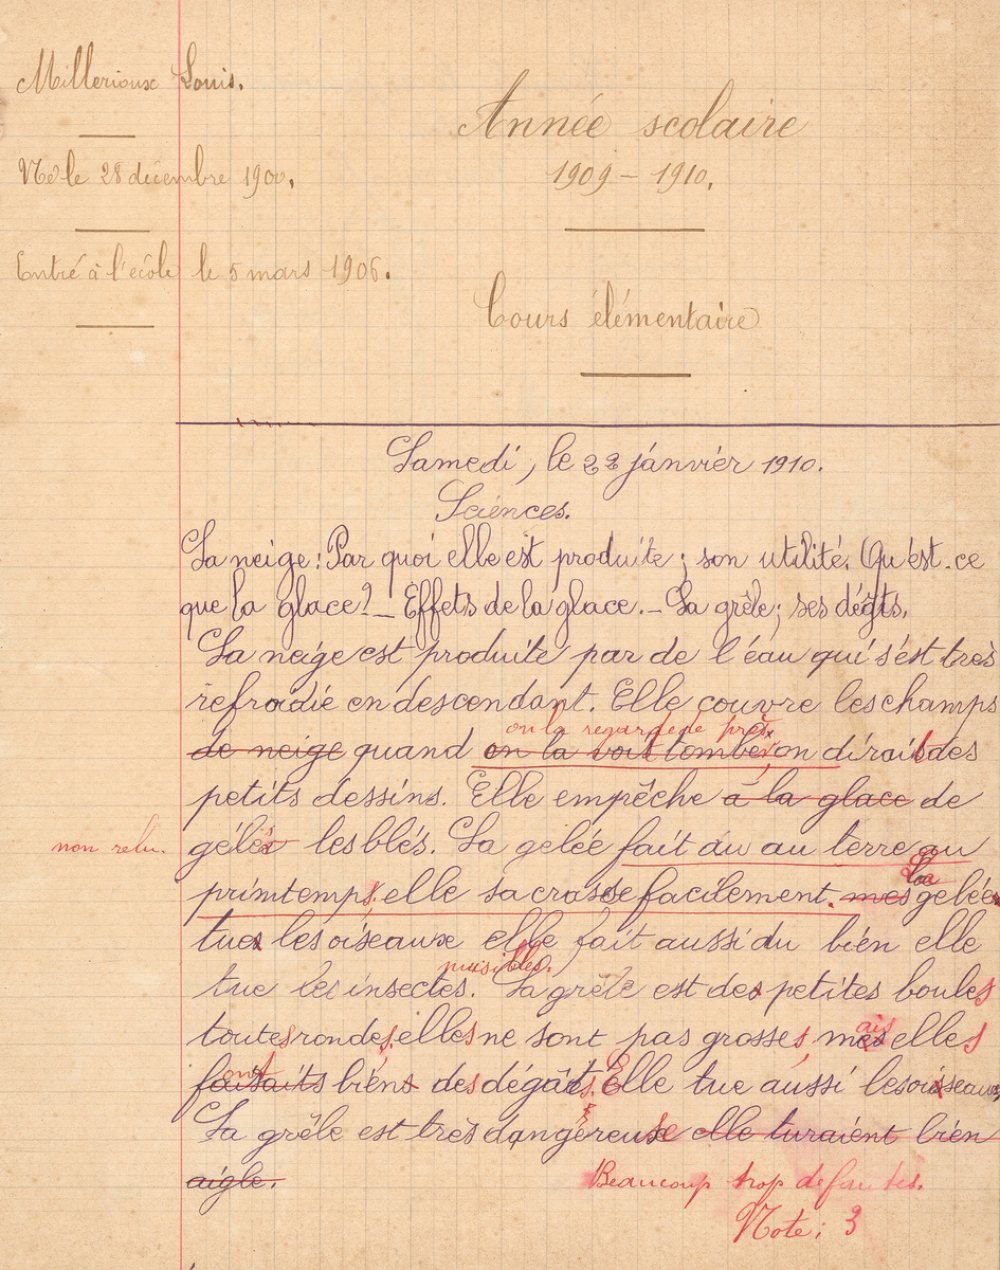 Millerioux Louis.
Année scolaire
Né le 28 décembre 1900.
1909 - 1910.
Entré à l'école le 5 mars 1906.
Cours élémentaire
Samedi, le 22 janvier 1910.
Sciences.
La neige : Par quoi elle est produite ; son utilité. Qu'est-ce
que la glace? _ Effets de la glace. _ La grêle ; ses dégts.
La neige est produite par de l'éau qui s'ést très
refroidié en descendant. Elle couvre les champs
on la regarde de près
de neige quand on la voit tomber, on dirait des
petits dessins. Elle empêche à la glace de
non relu.
géler les blés. La gelée fait du au terre au
La
printemps, elle sa crasse facilement. mes gelées
tues les oiseaux elle fait aussi du bien elle
nuisibles.
tue les insectes. La grêle est des petites boules
ais
toutes rondes, elles ne sont pas grosses, mes elles
ont
faisaits biens des dégâts. Elle tue aussi les oiseaux,
La grêle est très dangereuse elle turaient bien
aigle.
Beaucoup trop de fautes.
Note : 3